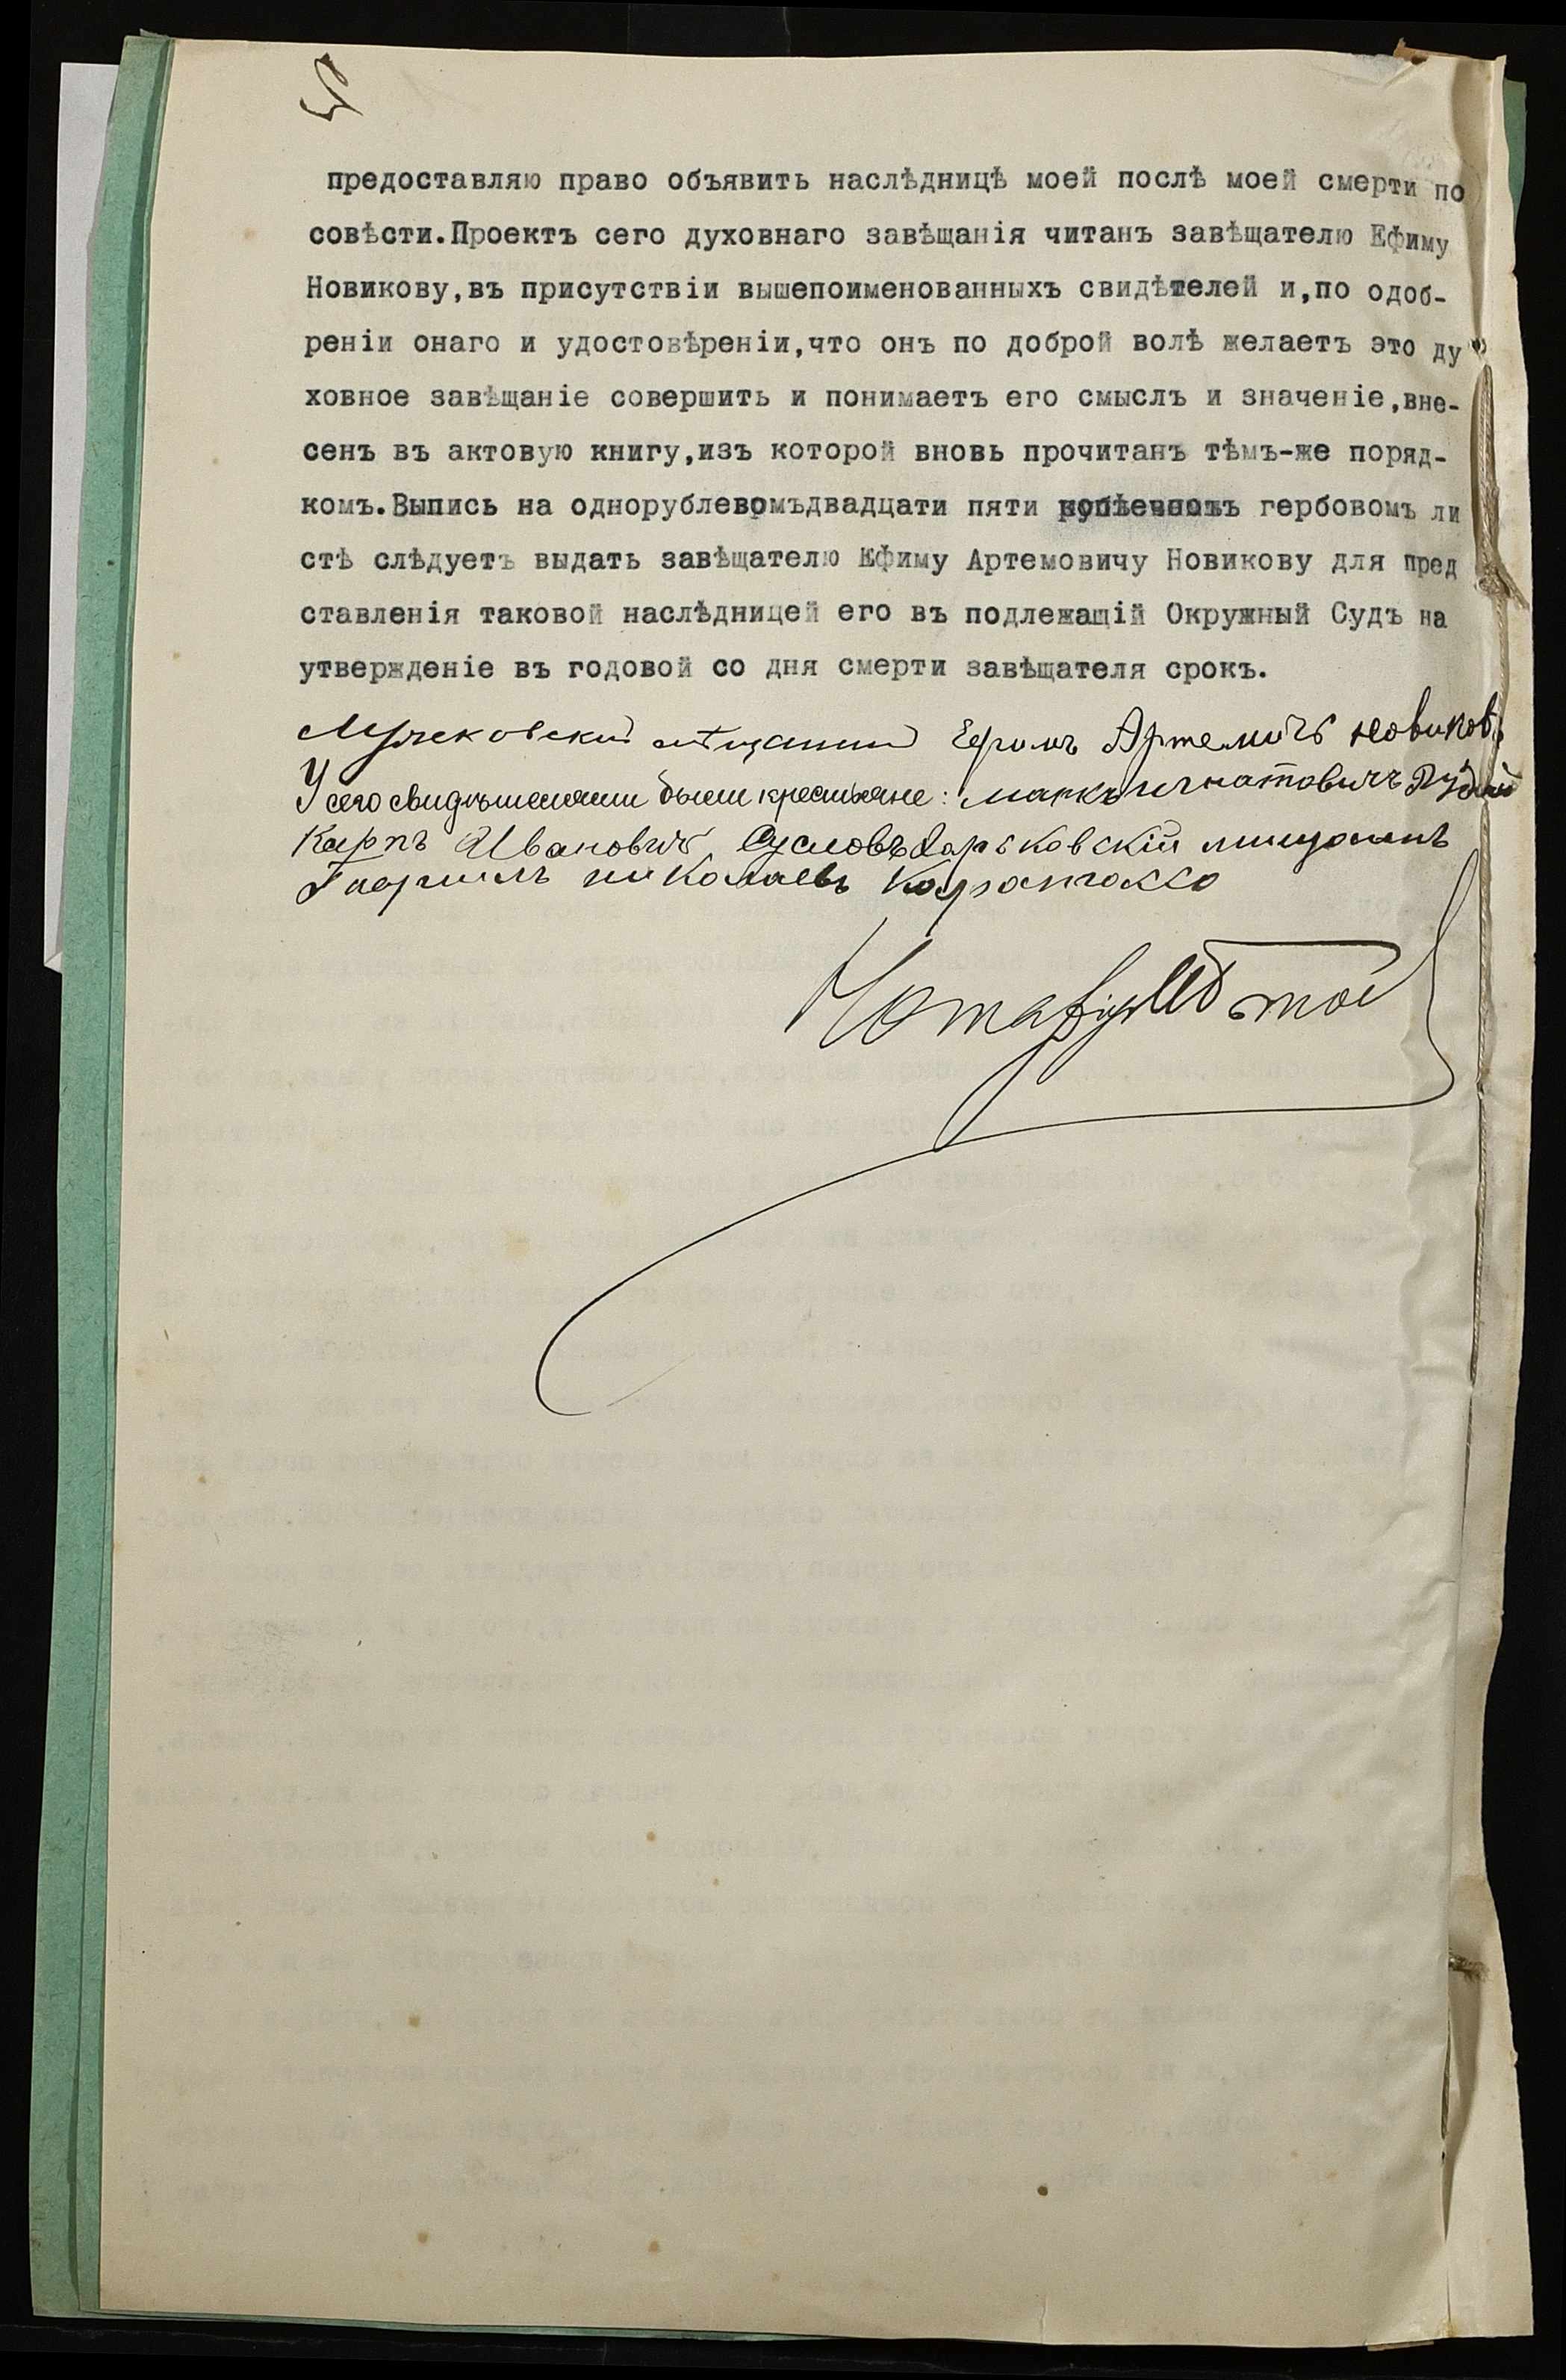 предоставляю право объявить наслѣдницѣ моей послѣ моей смерти по
совѣсти.Проектъ сего духовнаго завѣщанія читанъ завѣщателю Ефиму
Новикову,въ присутствіи вышепоименованныхъ свидѣтелей и,по одоб-
реніи онаго и удостовѣреніи,что онъ по доброй волѣ желаетъ это ду
ховное завѣщаніе совершить и понимаетъ его смыслъ и значеніе,вне-
сенъ въ актовую книгу,изъ которой вновь прочитанъ тѣмъ-же поряд-
комъ.Выпись на однорублевомъдвадцати пяти копѣечномъ гербовомъ ли
стѣ слѣдуетъ выдать завѣщателю Ефиму Артемовичу Новикову для пред
ставленія таковой наслѣдницей его въ подлежащій Окружный Судъ на
утвержденіе въ годовой со дня смерти завѣщателя срокъ.
мѣщанинъ Ефимъ Артемичъ Новиковъ
У сего свидѣтелями были крестьяне: Маркъ Игнатовичъ
Карпъ Ивановичъ Сусловъ Харьковскій мищанинъ
Гавриилъ Николаевъ
Нотаріусъ